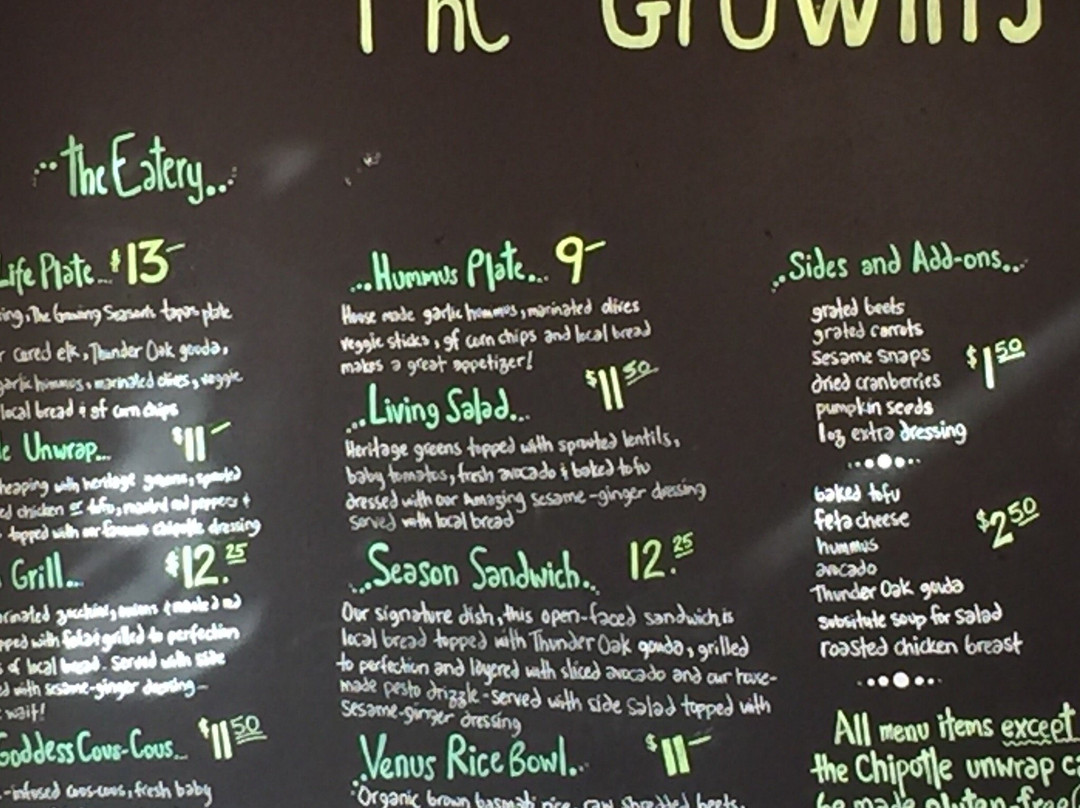 The Growing
..The Eatery...
Life Plate... $13-
The Growing Season's tapas plate
cured elk, Thunder Oak gouda,
garlic hummus, marinated olives, veggie
local bread & gf corn chips
Unwrap... $11-
heaping with heritage greens, sprouted
chicken or tofu, roasted red peppers &
topped with our famous chipotle dressing
Grill... $12.25
zucchini, onions & roasted red
with feta & grilled to perfection
of local bread. Served with side
with sesame-ginger dressing-
wait!
Goddess Cous-Cous... $11 50
-infused cous-cous, fresh baby
...Hummus Plate... 9-
House made garlic hummus, marinated olives
veggie sticks, gf corn chips and local bread
makes a great appetizer!
...Living Salad... $11 50
Heritage greens topped with sprouted lentils,
baby tomatos, fresh avocado & baked tofu
dressed with our Amazing sesame-ginger dressing
served with local bread
...Season Sandwich... 12.25
Our signature dish, this open-faced sandwich is
local bread topped with Thunder Oak gouda, grilled
to perfection and layered with sliced avocado and our house-
made pesto drizzle-served with side salad topped with
sesame-ginger dressing
Venus Rice Bowl.. $11-
Organic brown basmati rice, raw shredded beets,
...Sides and Add-ons...
grated beets
grated carrots
sesame snaps $1 50
dried cranberries
pumpkin seeds
1oz extra dressing
baked tofu
feta cheese $2 50
hummus
avocado
Thunder Oak gouda
substitute soup for salad
roasted chicken breast
All menu items except
the Chipotle unwrap ca
be made gluten free!